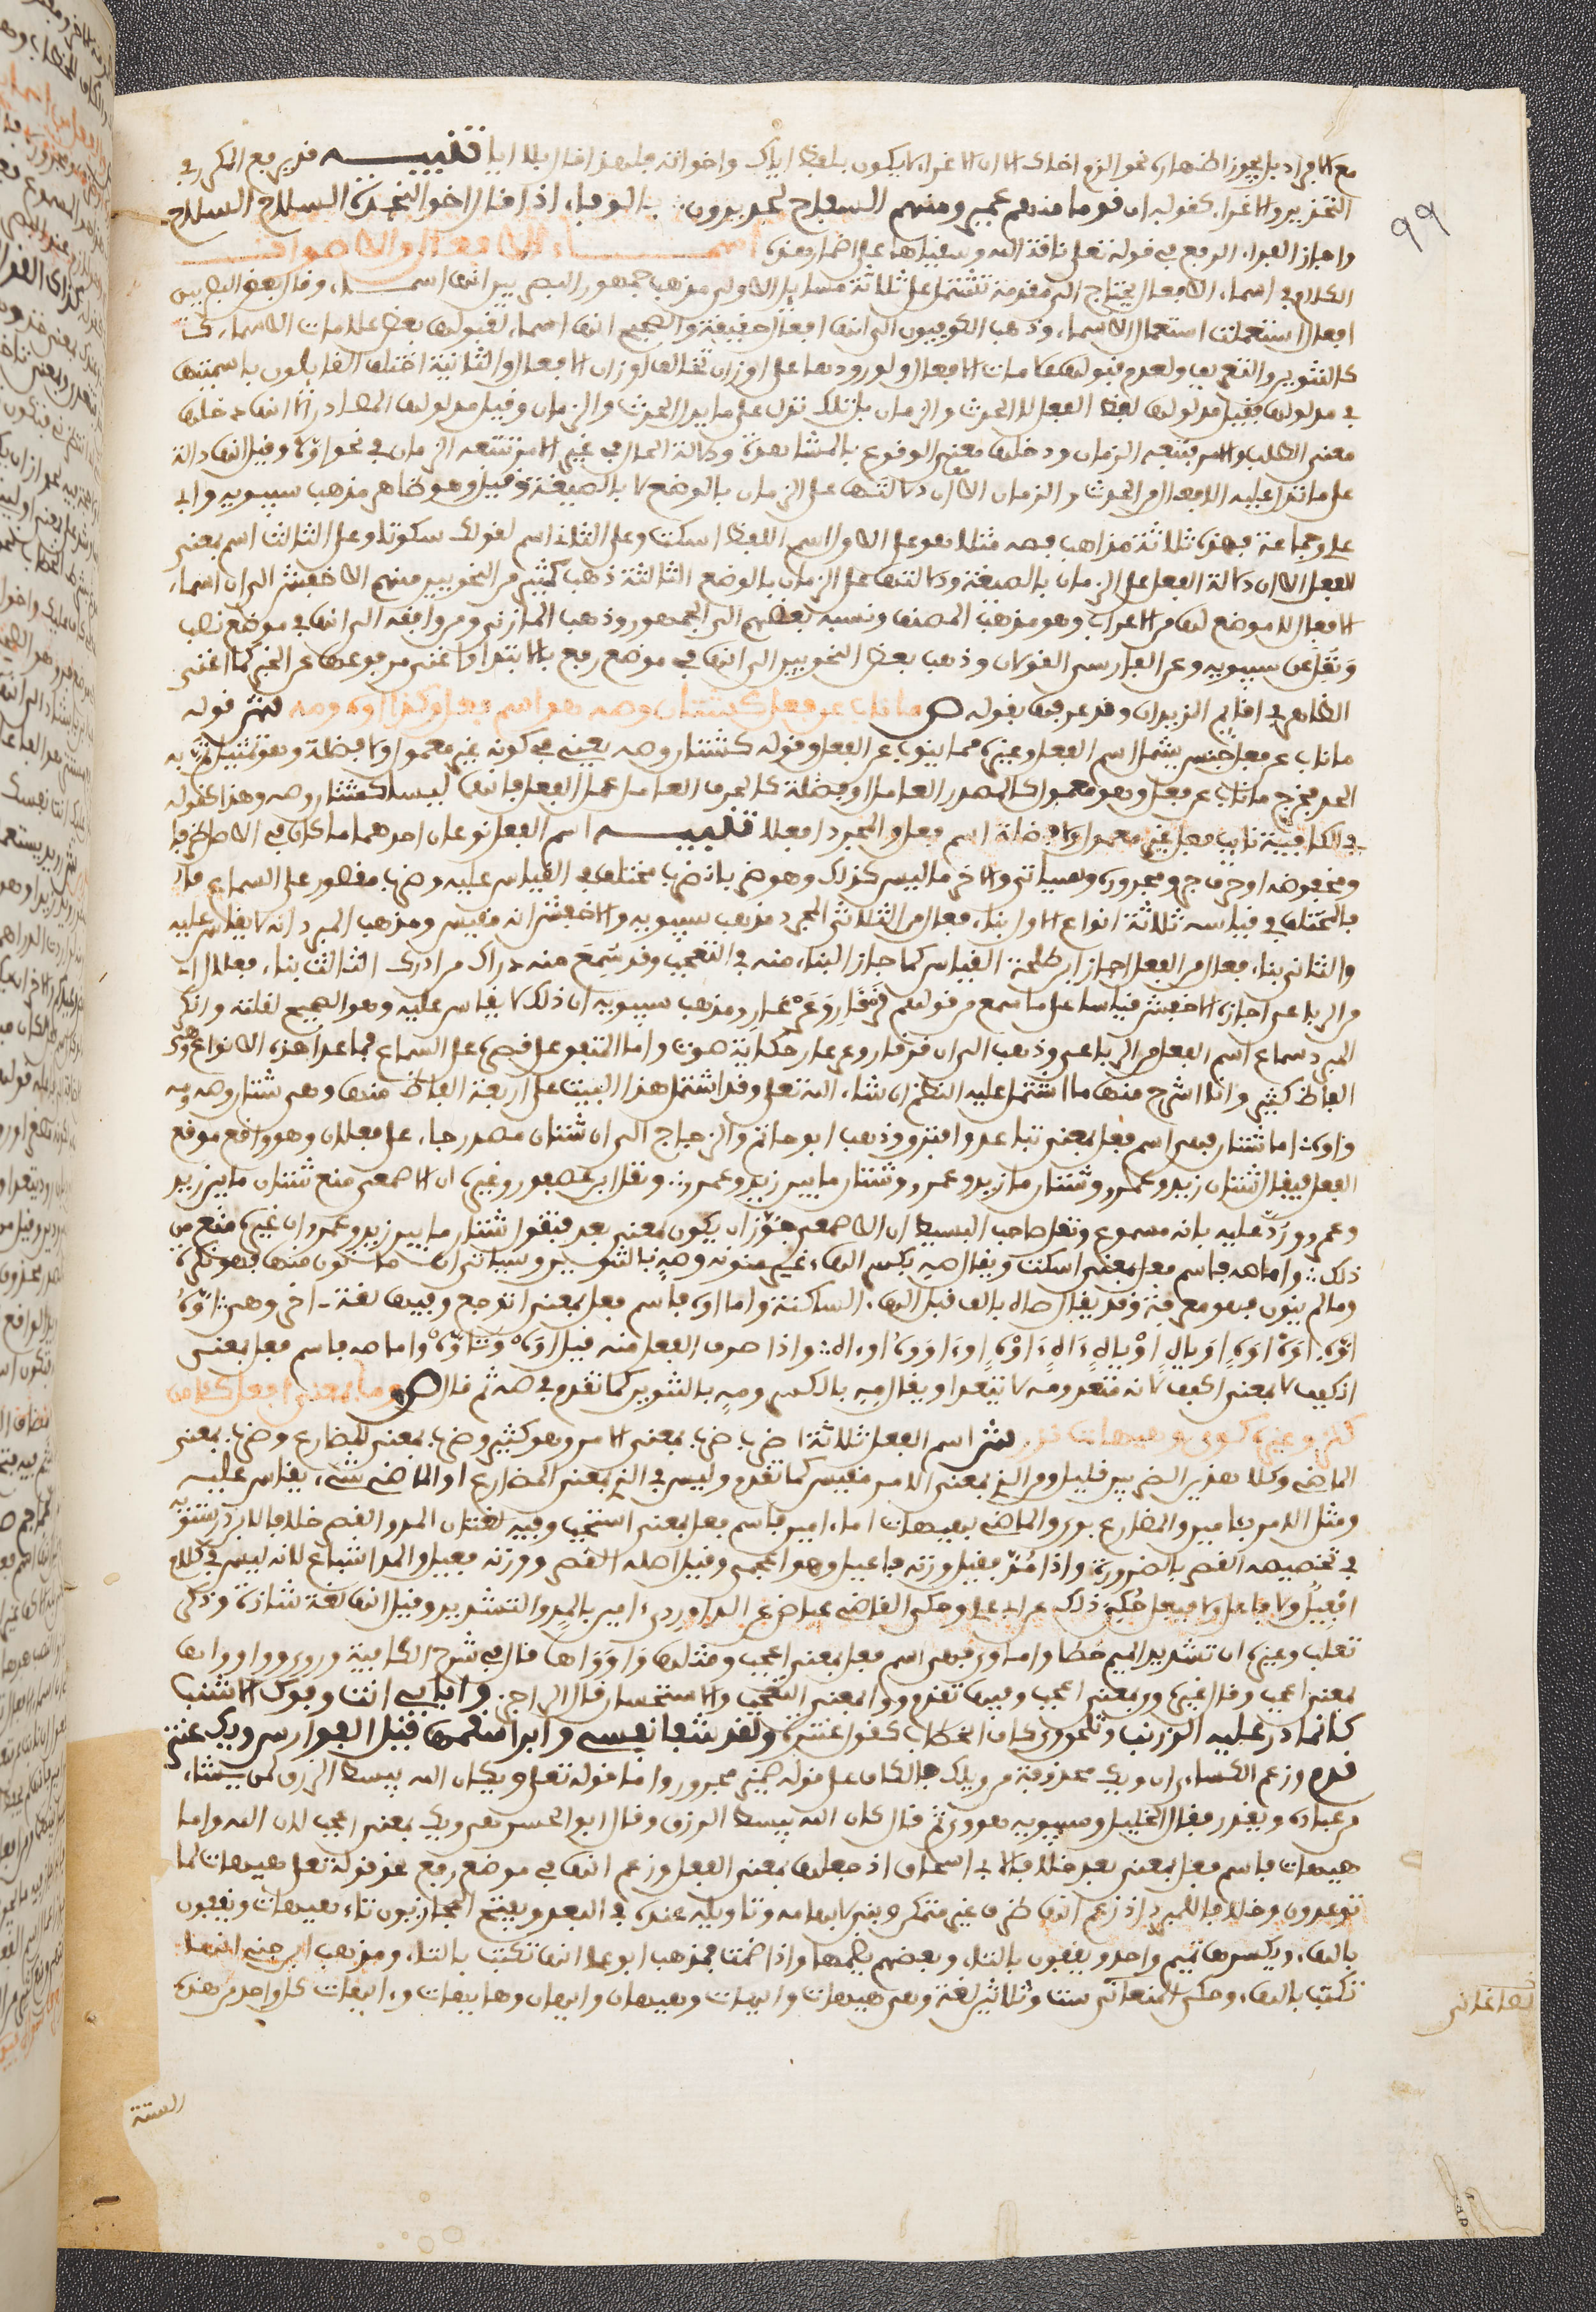 مع الافراد بل يجوز اظهاره نحو الزم اخاك الا ان الاغراء لا يكون بلفظ اياك واخواته فلهذا قال بلا ايا تنبيه قد يرفع المكرر في
التحذير والاغراء كقوله ان قوما منهم عمير ومنهم السفاح لجديرون بالوفاء اذا قال اخو النجدة السلاح السلاح
واجاز الفراء الرفع في قوله تعلى ناقة الله وسقياها على اضمار هذه اسماء الافعال والاصوات
الكلام في اسماء الافعال يحتاج الى مقدمة تشتمل على ثلاثة مسايل الاولى مذهب جمهور البصريين انها اسماء وقال بعض البصريين
افعال استعملت استعمال الاسماء وذهب الكوفيون الى انها افعال حقيقة والصحيح انها اسماء لقبولها بعض علامات الاسماء
كالتنوين والتعريف ولعدم قبولها علامات الافعال ولورودها على اوزان تخالف اوزان الافعال والثانية اختلف القايلون باسميتها
في مدلولها فقيل مدلولها لفظ الفعل لا الحدث والزمان بل تلك تدل على ما يدل الحدث والزمان وقيل مدلولها المصادر الا انها دخلها
معنى الطلب والامر فتتبعه الزمان ودخلها معنى الوقوع بالمشاهدة ودلالة الحال في غير الامر فتتبعه الزمان في نحو اوه وقيل انها دالة
على ما تدل عليه الافعال من الحدث والزمان الا ان دلالتها على الزمان بالوضع لا بالصيغة وقيل وهو ظاهر مذهب سيبويه وابي
علي وجماعة فهذه ثلاثة مذاهب فصه مثلا هو على الاول اسم اللفظ اسكت وعلى الثاني اسم لقولك سكوتا وعلى الثالث اسم بمعنى
الفعل الا ان دلالة الفعل على الزمان بالصيغة ودلالتها على الزمان بالوضع الثالثة ذهب كثير من النحويين ومنهم الاخفش الى ان اسماء
الافعال لا موضع لها من الاعراب وهو مذهب المصنف ونسبه بعضهم الى الجمهور وذهب المازني ومن وافقه الى انها في موضع نصب
ونقل عن سيبويه وعن الفارسي القولان وذهب بعض النحويين الى انها في موضع رفع بالابتدا واغنى مرفوعها عن الخبر كما اغنى
الظاهر في اقايم الزيدان وقد عرفها بقوله ص ما ناب عن فعل كشتان وصه هو اسم فعل وكذا اوه ومه ش قوله
ما ناب عن فعل جنس يشمل اسم الفعل وغيره مما ينوب عن الفعل وقوله كشتان وصه يعني في كونه غير معمول ولا فضلة وهو تتميم به
الحد فخرج ما ناب عن فعل وهو معمول كالمصدر العامل او فضلة كالحرف العامل عمل الفعل فانها ليسا كشتان وصه وهذا كقوله
في الكافية نايب فعل غير معمول ولا فضلة اسم فعل والمجرد افعلا تنبيه اسم الفعل نوعان احدهما ما كان في الاصل ظرفا
ومخفوضه او حرف جر ومجروره وسياتي والاخر ما ليس كذلك وهو ضربان ضرب مختلف في القياس عليه وضرب مقصور على السماع
فالمختلف في قياسه ثلاثة انواع الاول بناء فعال من الثلاثي المجرد مذهب سيبويه والاخفش انه مقيس ومذهب المبرد انه لا يقاس عليه
والثاني بناء فعال من افعل اجاز ابن طلحة القياس كما جاز البناء منه في التعجب وقد سمع منه دراك من ادرك الثالث بناء فعلال
من الرباعي اجازه الاخفش قياسا على ما سمع من قولهم قرقار وعرعار ومذهب سيبويه ان ذلك لا يقاس عليه وهو الصحيح لقلته وانكر
المبرد سماع اسم الفعل من الرباعي وذهب الى ان قرقار وعرعار حكاية صوت واما المتفق على قصره على السماع فما عدا هذه الانواع وهي
الفاظ كثيرة وانا اشرح منها ما اشتمل عليه النظم ان شاء الله تعلى وقد اشتمل هذا البيت على اربعة الفاظ منها وهي شتان وصه ومه
واوه اما شتان فهي اسم فعل بمعنى تباعد وافترق وذهب ابو حاتم والزجاج الى ان شتان مصدر جاء على فعلان وهو واقع موقع
الفعل فيقال شتان زيد وعمرو وشتان ما زيد وعمرو وشتان ما بين زيد وعمرو ونقل ابن عصفور وغيره ان الاصمعي منع شتان ما بين زيد
وعمرو ورد عليه بانه مسموع ونقل صاحب البسيط ان الاصمعي جوز ان يكون بمعنى بعد فتقول شتان ما بين زيد وعمرو وان غيره منع من
ذلك واما صه فاسم فعل بمعنى اسكت ويقال صه بكسر الهاء غير منونة وصه بالتنوين وسياتي ان ما نون منها فهو نكرة
وما لم ينون فهو معرفة وقد يقال صاه بالف قبل الهاء الساكنة واما اوه فاسم فعل بمعنى اتوجع وفيها لغة اخرى وهي
واذا صرف الفعل منه قيل اوه وتاوه واما مه فاسم فعل بمعنى
انكفف لا بمعنى اكفف لانه متعد ومه لا يتعدى ويقال مه بالكسر ومه بالتنوين كما تقدم في صه ثم قال ص وما بمعنى افعل كامين
كثر وغيره كوى وهيهات نزر ش اسم الفعل ثلاثة اضرب ضرب بمعنى الامر وهو كثير وضرب بمعنى المضارع وضرب بمعنى
الماضي وكلا هذين الضربين قليل والذي بمعنى الامر مقيس كما تقدم وليس في الذي بمعنى المضارع او الماضي شيء يقاس عليه
ومثل الامر بامين والمضارع بوى والماضي بهيهات اما امين فاسم فعل بمعنى استجب وفيه لغتان المد والقصر خلافا لابن درستويه
في تخصيصه القصر بالضرورة واذا مد فقيل وزنه فاعيل وهو اعجمي وقيل اصله القصر ووزنه فعيل والمد اشباع لانه ليس في كلام
افعيل ولا فاعل ولا فيعل حكى ذلك عن ابي علي وحكى القاضي عياض عن الداودي امين بالمد والتشديد وقيل انها لغة شاذة وذكر
ثعلب وغيره ان تشديد الميم خطا واما وى فهي اسم فعل بمعنى اعجب ومثلها وا وواها قال في شرح الكافية ووى ووا وواها
بمعنى اعجب وقال غيره وى بمعنى اعجب وفيها تندم ووا بمعنى التعجب والاستحسان قال الراجز وا بابي انت وفوك الاشنب
كانما ذر عليه الزرنب وتلحق وى كاف الخطاب كقول عنترة ولقد شفا نفسي وابرا سقمها قيل الفوارس ويك عنتر
اقدم وزعم الكسائي ان ويك محذوفة من ويلك فالكاف على قوله ضمير مجرور واما قوله تعلى ويكان الله يبسط الرزق لمن يشاء
من عباده ويقدر فقال الخليل وسيبويه هو وى ثم قال كان الله يبسط الرزق وقال ابو الحسن هي ويك بمعنى اعجب لان الله واما
هيهات فاسم فعل بمعنى بعد خلافا لابي اسحاق اذ جعلها بمعنى البعد وزعم انها في موضع رفع نحو قوله تعلى هيهات لما
توعدون وخلافا للمبرد اذ زعم انها ظرف غير متمكن وبني لابهامه وتاويله عنده في البعد ويفتح الحجازيون تاء هيهات ويقفون
بالهاء ويكسرها تميم واحد ويقفون بالتاء وبعضهم يضمها واذا ضمت فمذهب ابو علي انها تكتب بالتاء ومذهب ابن جني انها
تكتب بالهاء وحكى الصنعاني ستا وثلاثين لغة وهي هيهات وايهات وهيهان وايهان وهايهات وايهات كل واحدة من هذه
الصاغاني
الستة
٩٩